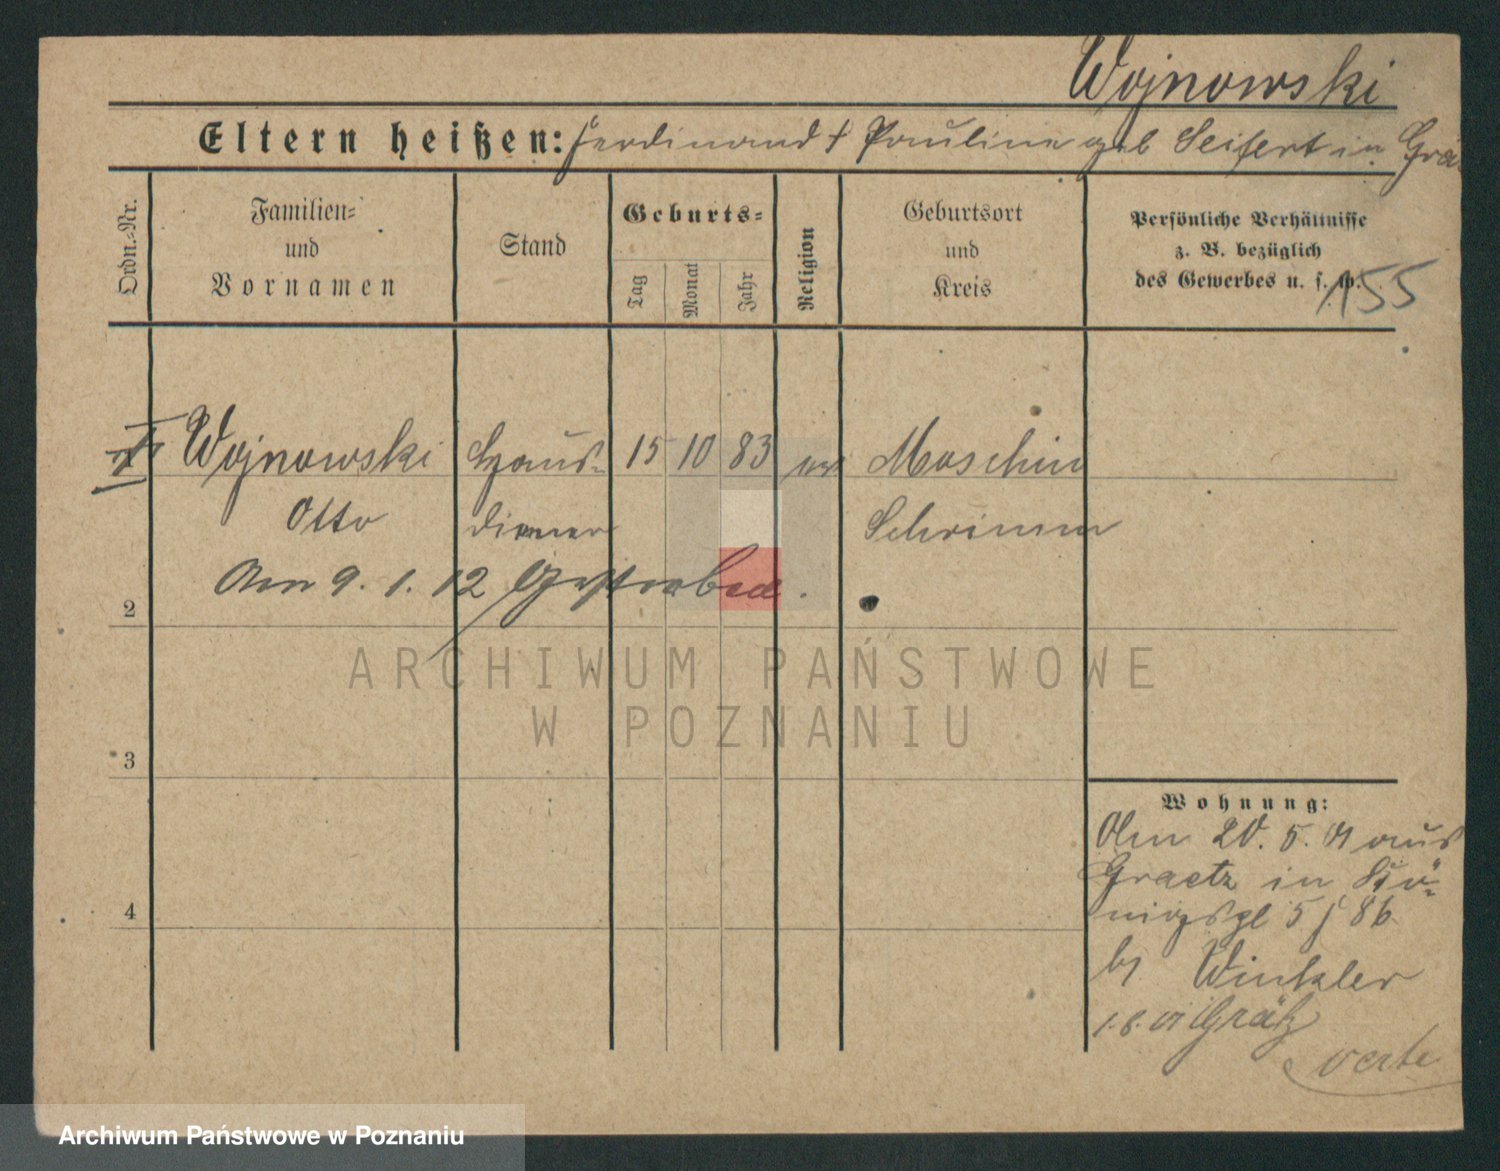 Wojnowski
Eltern heißen: Ferdinand † Pauline geb Seifert in Grä
Ordn.-Nr.
Familien-
und
Vornamen
Stand
Geburts-
Tag
Monat
Jahr
Religion
Geburtsort
und
Kreis
Persönliche Verhältnisse
z. B. bezüglich
des Gewerbes u. s. w.
155
Wojnowski Haus- 15 10 83 ev Moschin
Otto diener Schrimm
2 Am 9. 1. 12 Gestorben.
3
4
Wohnung:
Am 20. 5. 01 aus
Graetz in Kö-
nigspl 5 / 8b
bei Winkler
1.8.01 Grätz
verte
ARCHIWUM PAŃSTWOWE
W POZNANIU
Archiwum Państwowe w Poznaniu